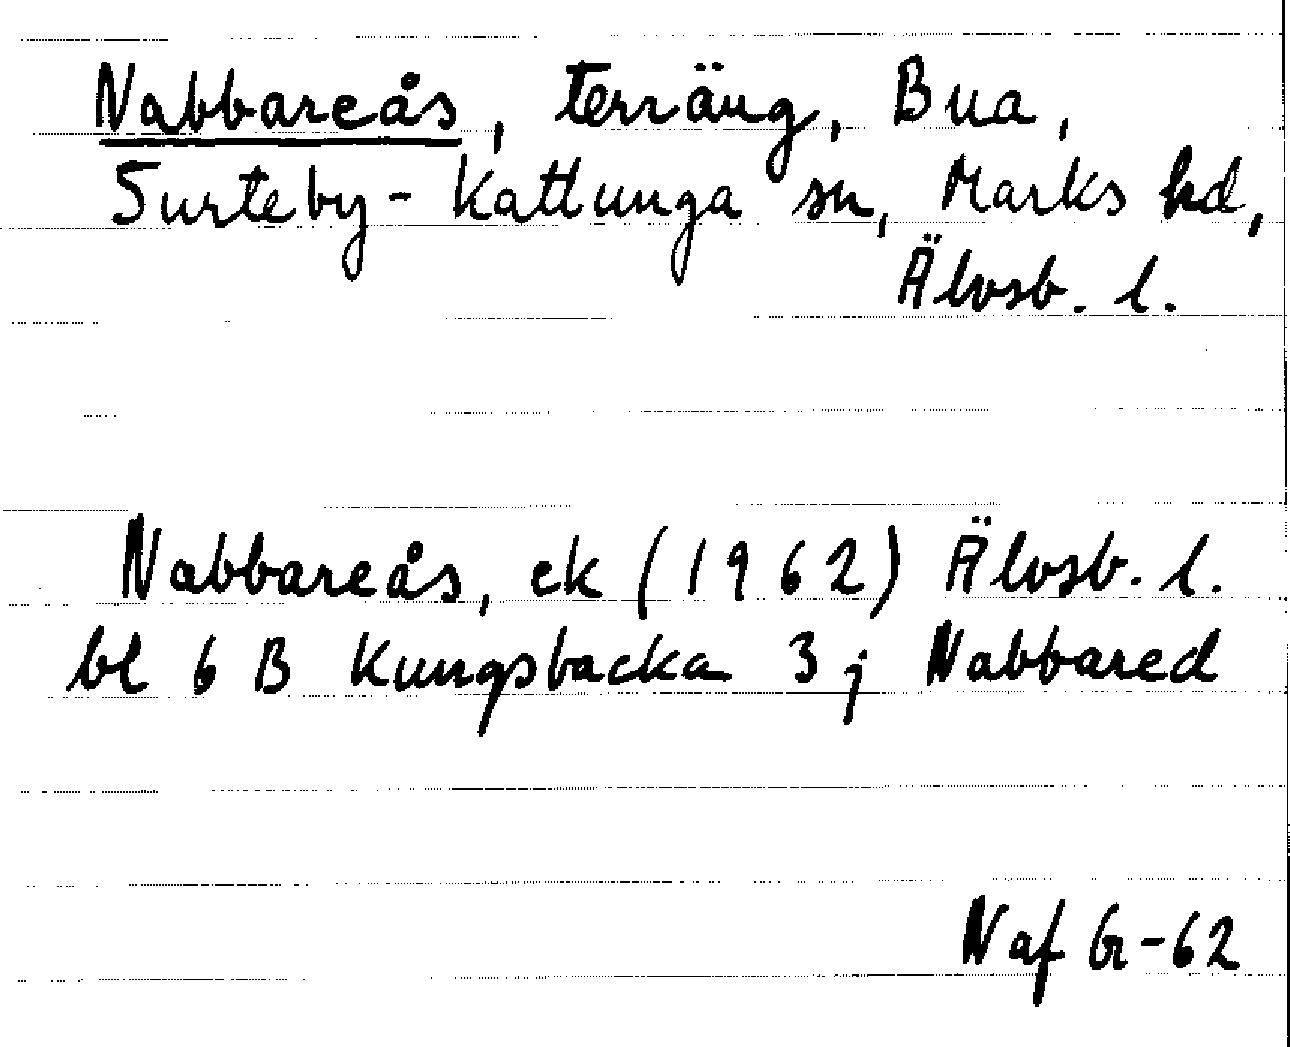 Nabbareås, terräng, Bua,
Surteby-Kattunga sn, Marks hd,
Älvsb. l.
Nabbareås, ek (1962) Älvsb. l.
bl 6 B Kungsbacka 3 j Nabbared
Naf Gr-62